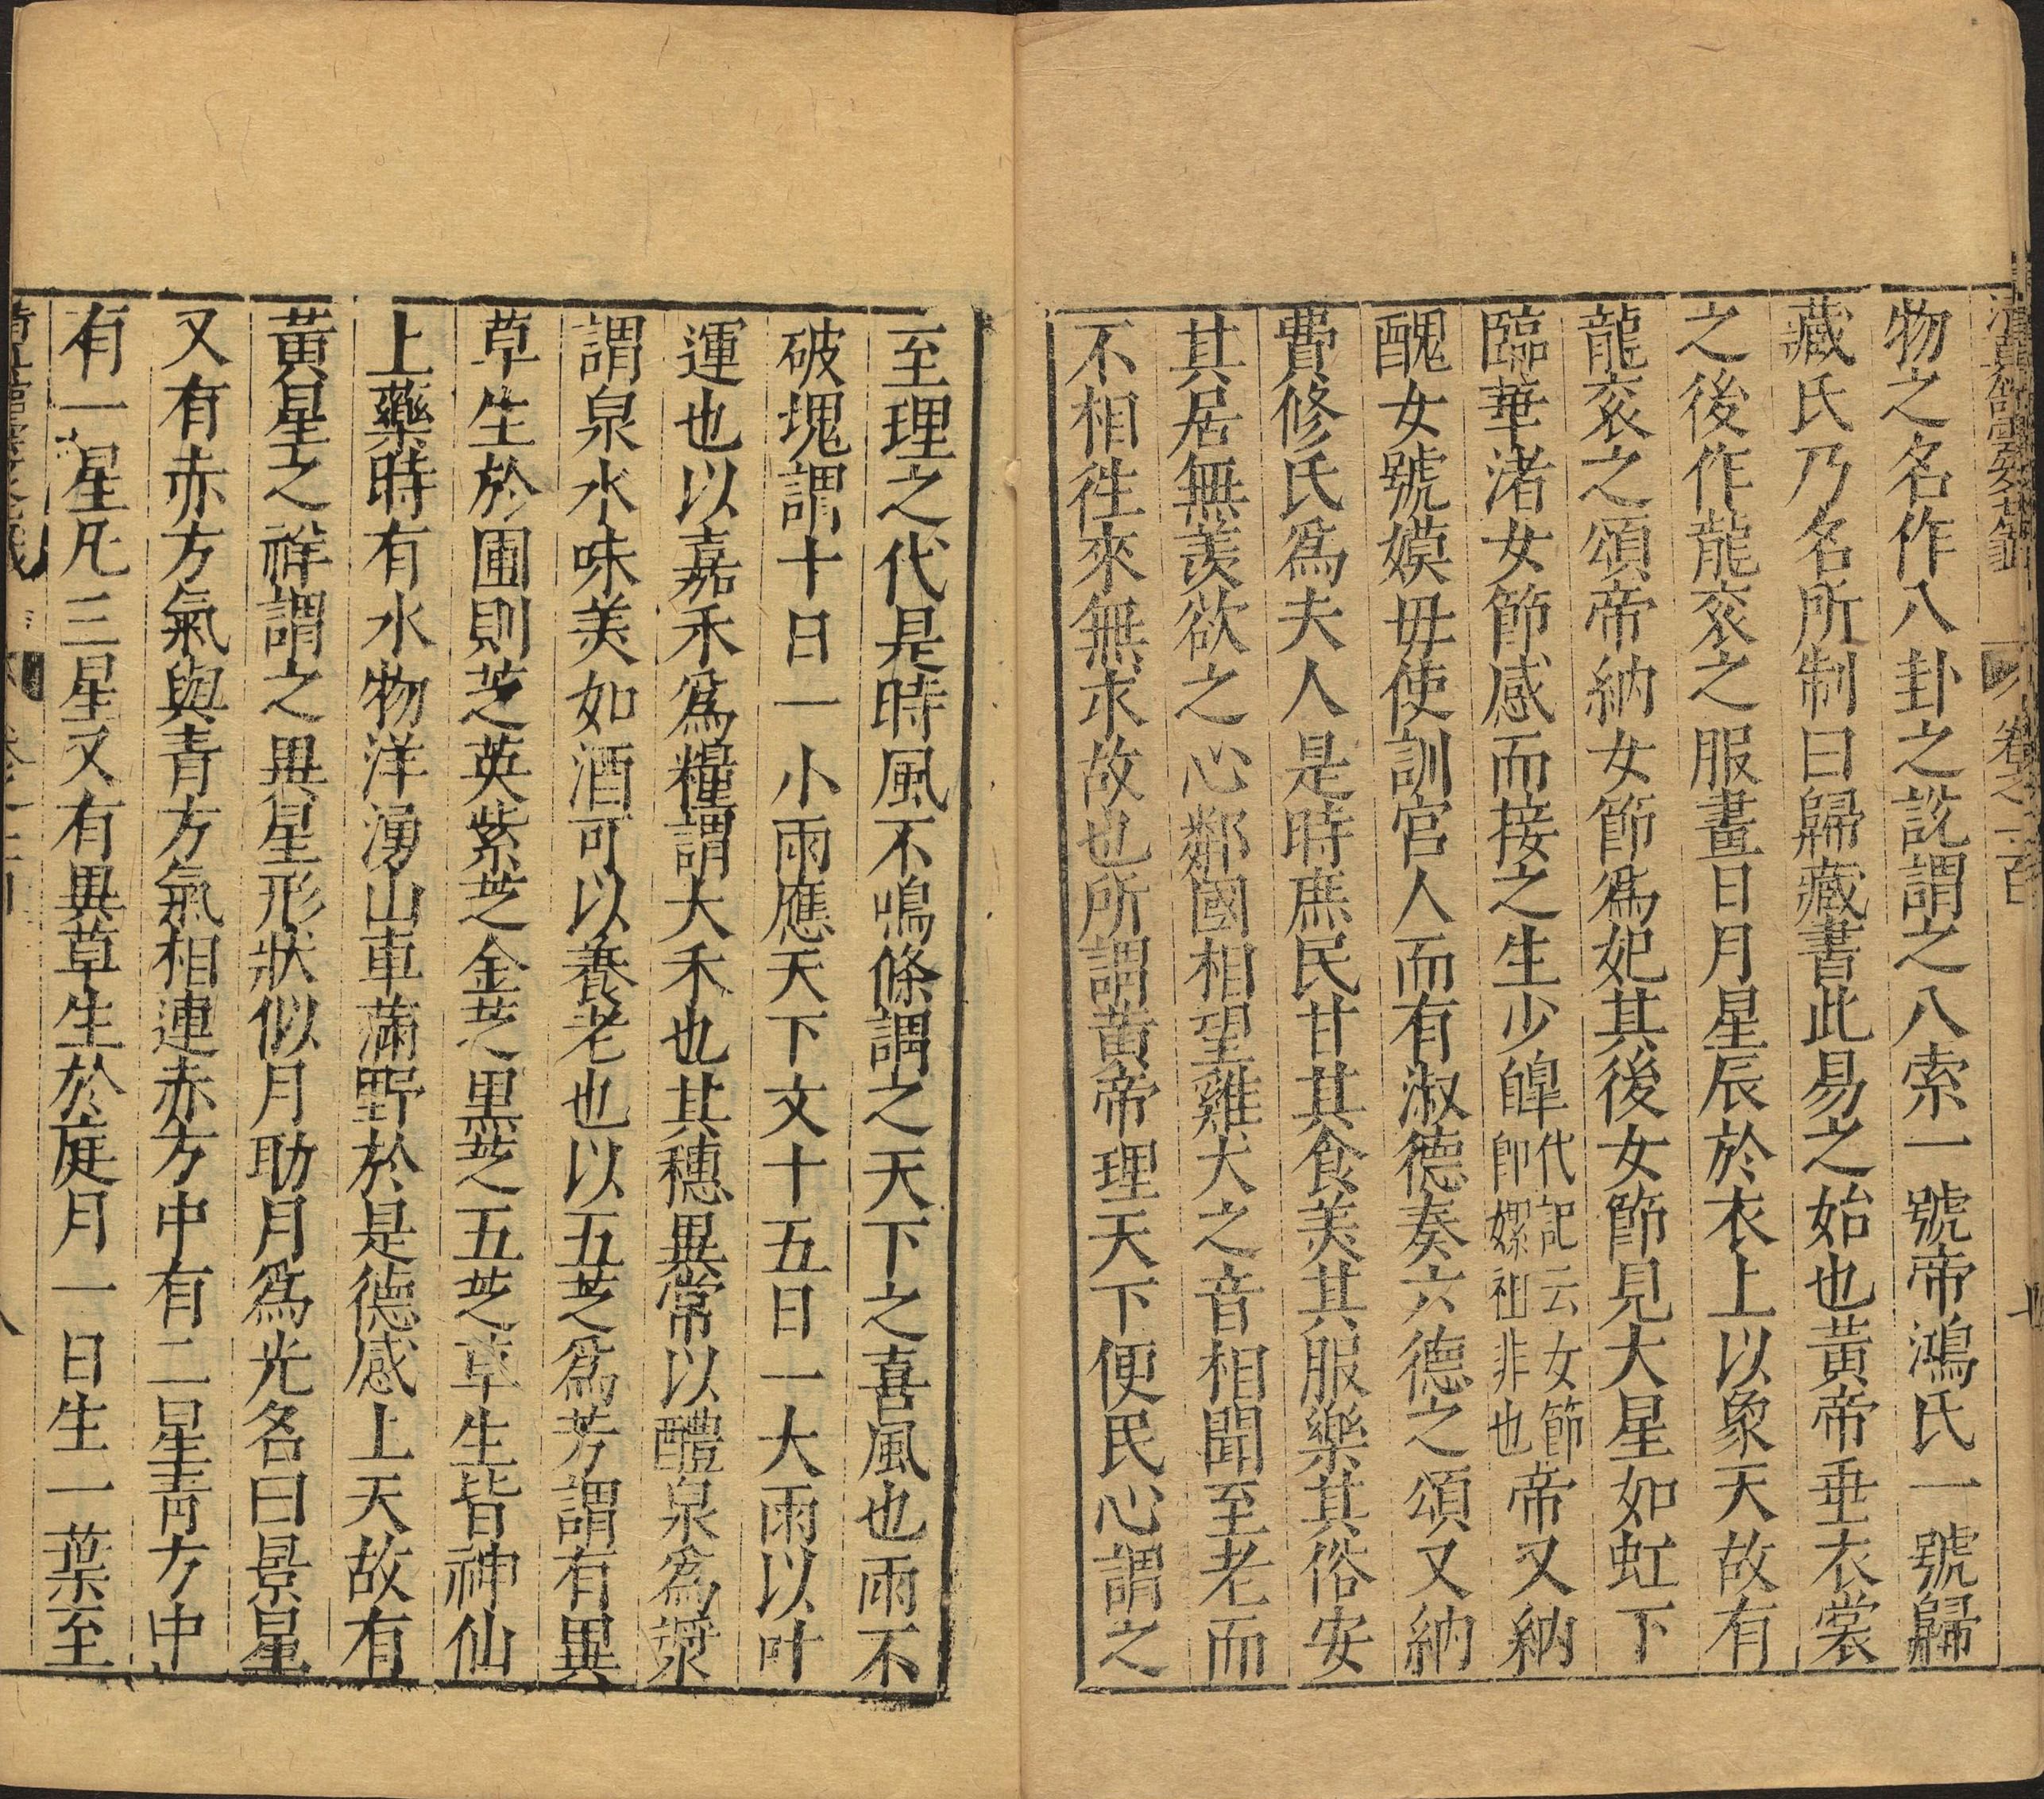 物之名作八卦之說謂之八索一號帝鴻氏一號歸
藏氏乃名所制曰歸藏書此易之始也黃帝垂衣裳
之後作龍袞之服畫日月星辰於衣上以象天故有
龍袞之頌帝納女節爲妃其後女節見大星如虹下
臨華渚女節感而接之生少皡代記云女節即嫘祖非也帝又納
醜女號嫫毋使訓官人而有淑德奏六德之頌又納
費修氏爲夫人是時庶民甘其食美其服樂其俗安
其居無羡欲之心鄰國相望雞犬之音相聞至老而
不相徃來無求故也所謂黃帝理天下便民心謂之
至理之代是時風不鳴條謂之天下之喜風也雨不
破塊謂十日一小雨應天下文十五日一大雨以叶
運也以嘉禾爲糧謂大禾也其穗異常以醴泉爲漿
謂泉水味美如酒可以養老也以五芝爲芳謂有異
草生於圃則芝英紫芝金芝黑芝五芝草生皆神仙
上藥時有水物洋湧山車滿野於是德感上天故有
黃星之祥謂之異星形狀似月助月爲光名曰景星
又有赤方氣與青方氣相連赤方中有二星青方中
有一星凡三星又有異草生於庭月一日生一葉至